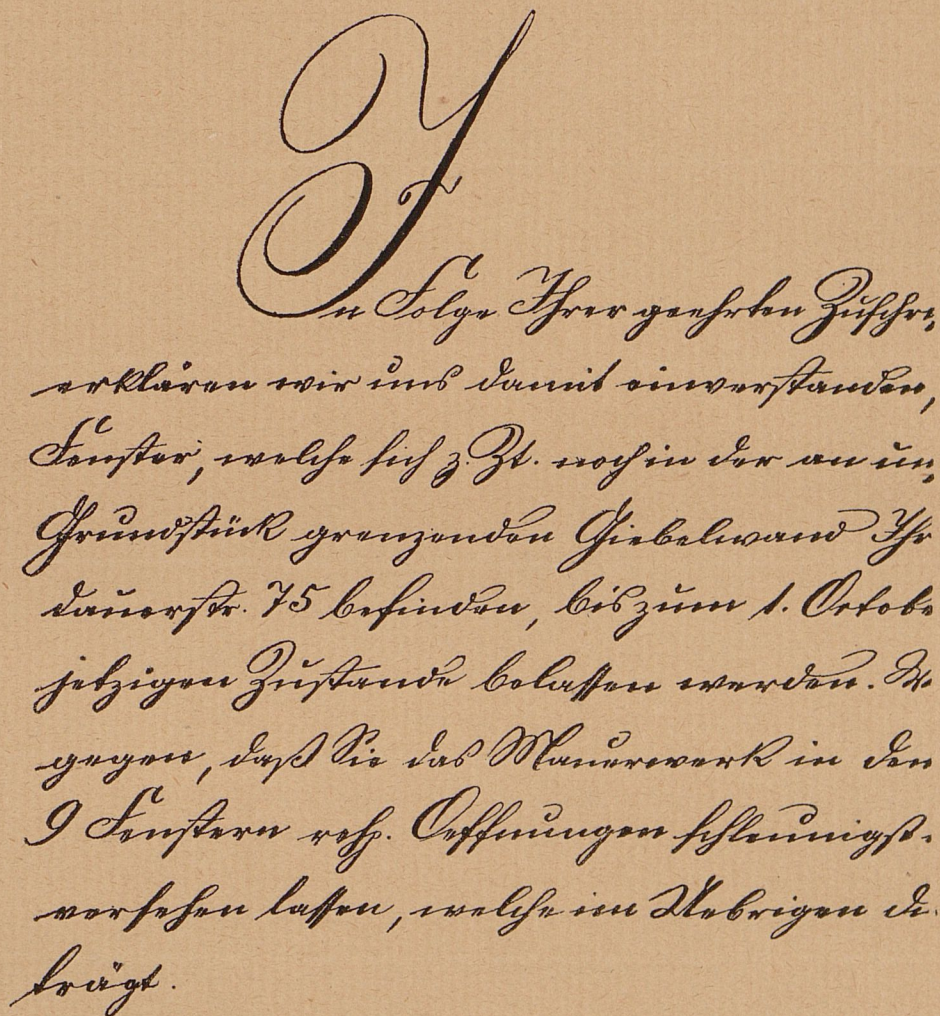 In Folge Ihrer geehrten Zuschri
erklären wir uns damit einverstanden,
Fenster, welche sich z. Zt. noch in der an un
Grundstück grenzenden Giebelwand Ihr
dauerstr. 75 befinden, bis zum 1. Octobe
jetzigen Zustande belassen werden. W
gegen, daß Sie das Mauerwerk in den
9 Fenstern resp. Oeffnungen schleunigst
versehen lassen, welche im Uebrigen di
trägt.